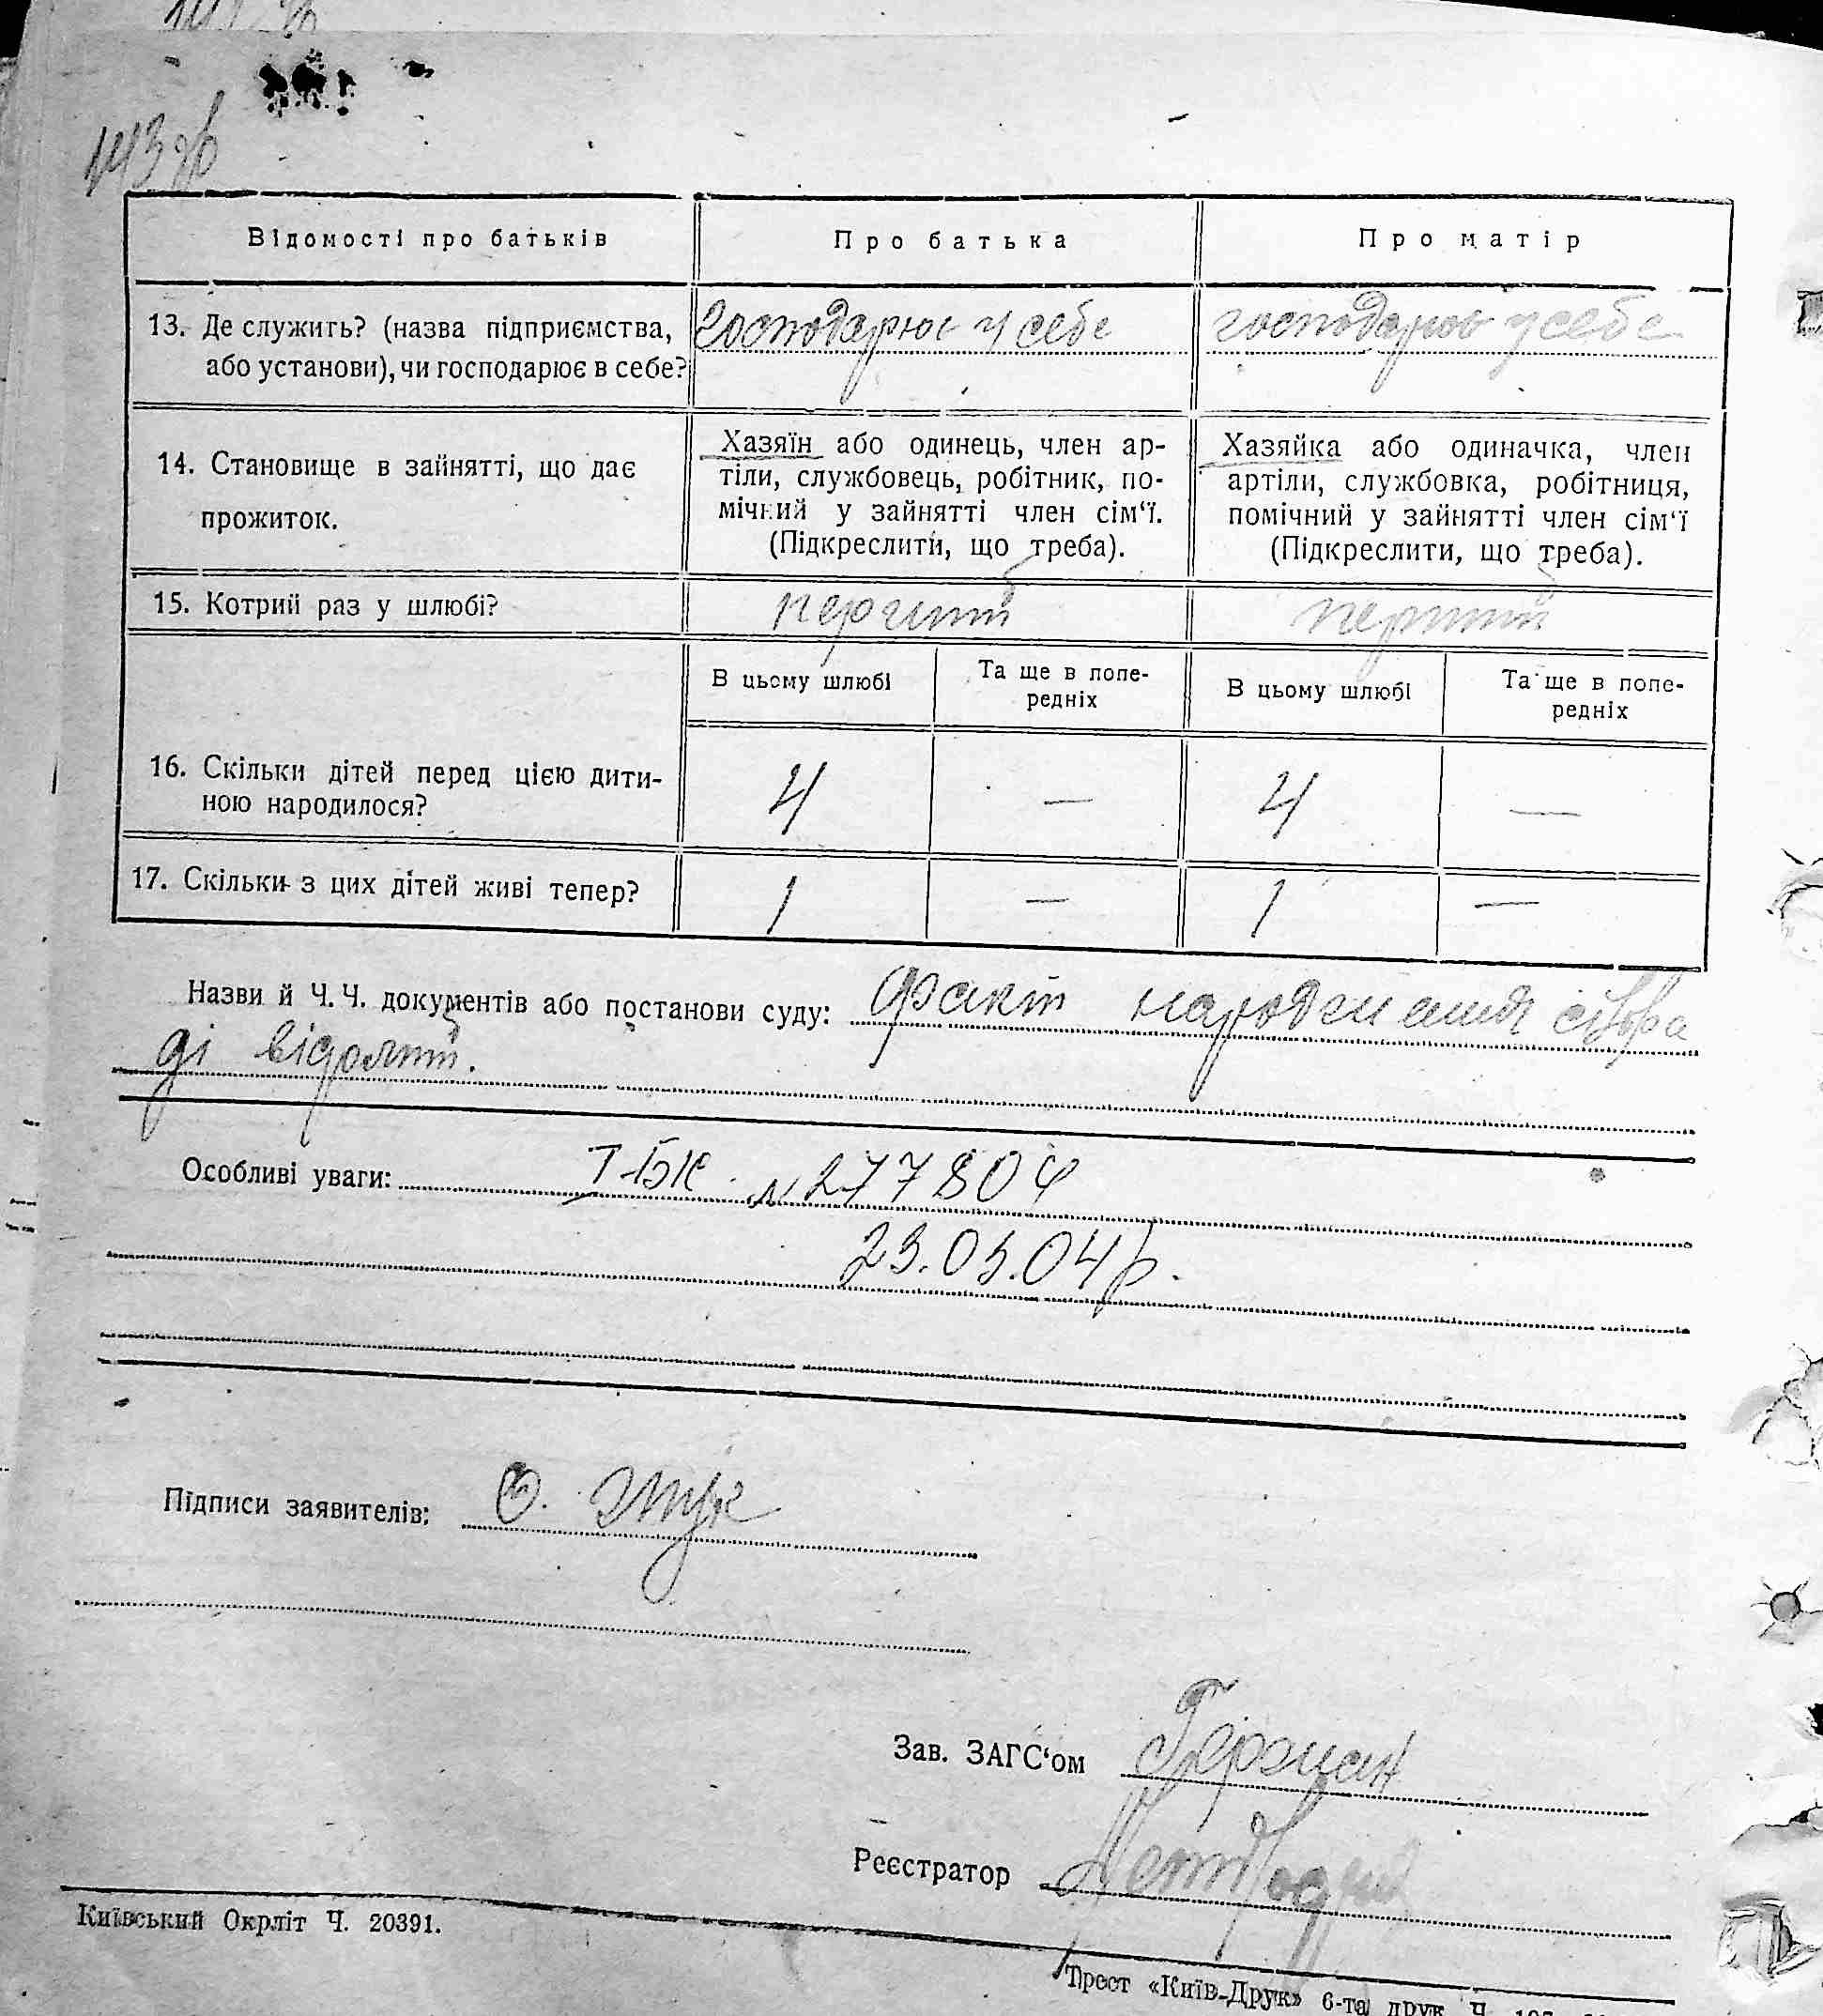 143 зв
Відомості про батьків
Про батька
Про матір
13. Де служить? (назва підприємства,
або установи), чи господарює в себе?
господарює у себе
господарює у себе
14. Становище в зайнятті, що дає
прожиток.
Хазяїн або одинець, член ар-
тіли, службовець, робітник, по-
мічний у зайнятті член сім‘ї.
(Підкреслити, що треба).
Хазяйка або одиначка, член
артіли, службовка, робітниця,
помічний у зайнятті член сім‘ї
(Підкреслити, що треба).
15. Котрий раз у шлюбі?
перший
перший
В цьому шлюбі
Та ще в попе-
редніх
В цьому шлюбі
Та ще в попе-
редніх
16. Скільки дітей перед цією дити-
ною народилося?
4
—
4
—
17. Скільки з цих дітей живі тепер?
1
—
1
—
Назви й Ч. Ч. документів або постанови суду: Факт народження сільра
ді відомий.
Особливі уваги: І-БК № 277804
23.03.04р.
Підписи заявителів: О. Жук
Зав. ЗАГС‘ом Герман
Реєстратор
Київський Окрліт Ч. 20391.
Трест «Київ-Друк» 6-та друк. Ч.